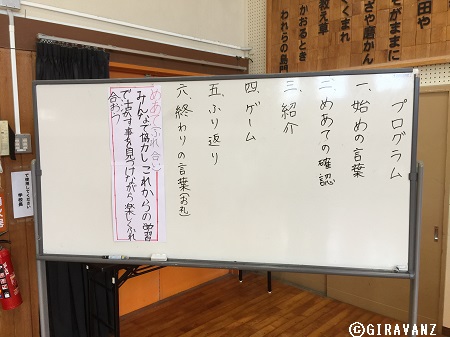 プログラム
一、始めの言葉
二、めあての確認
三、紹介
四、ゲーム
五、ふり返り
六、終わりの言葉(お礼)
めあて(ふれ合い)
みんなで協力し、これからの学習
で活かす事を見つけながら楽しくふれ
合おう
田や
そがままに
さや磨かん
くくまれ
教え草
かおるとき
われらの島門
学校長
©GIRAVANZ